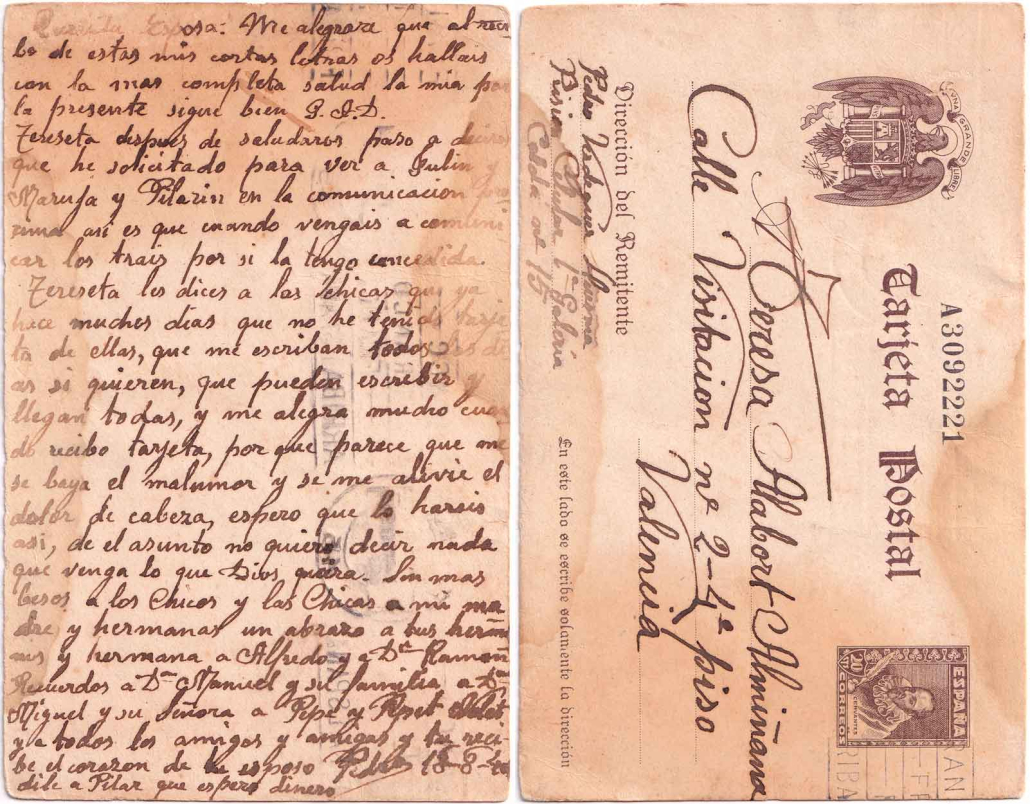 Querida Esposa: Me alegrare que al reci
bo de estas mis cortas letras os hallais
con la mas completa salud la mia por
la presente sigue bien G.A.D.
Tereseta despues de saludaros paso a deciros
que he solicitado para ver a Julin y
Maruja y Pilarin en la comunicacion
asi es que cuando vengais a comuni
car los trais por si la tengo concedida.
Tereseta les dices a las chicas que ya
hace muchos dias que no he tenido tarje
ta de ellas, que me escriban todos
as si quieren, que pueden escribir y
llegan todas, y me alegra mucho cuan
do recibo tarjeta, por que parece que me
se baya el malumor y se me alivie el
dolor de cabeza, espero que lo harais
asi, de el asunto no quiero decir nada
que venga lo que Dios quiera. Sin mas
besos a los Chicos y las Chicas a mi ma
dre y hermanas un abrazo a tus herma
nos y hermana a Alfredo y a Dª Ramona
Recuerdos a Dn Manuel y su familia a Dn
Miguel y su Señora a Pepe y Pepet
y a todos los amigos y amigas y tu reci-
be el corazon de tu esposo Pedro 18-8-40
dile a Pilar que espero dinero
UNA GRANDE LIBRE
A3092221
Tarjeta Postal
ESPAÑA
CERVANTES
20 CTS
CORREOS
Teresa Alabort Almiñana
Calle Visitacion nº 2-4ª piso
Valencia
Dirección del Remitente
Pedro
Prision 1ª Galeria
Celda nº 15
En este lado se escribe solamente la dirección